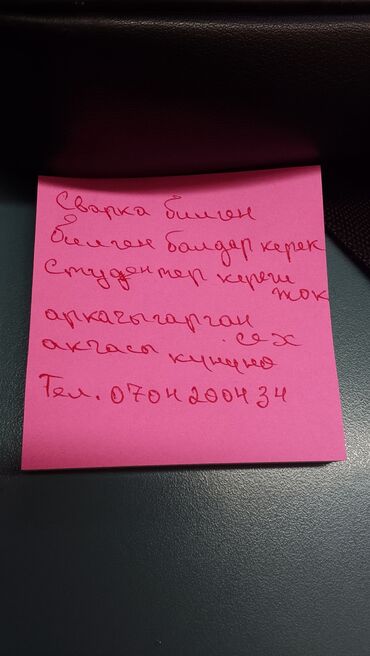 Сварка билген
билген балдар керек
Студенттер кереги
жок
аркачыгарган
сех
акчасы кунуно
Тел. 0704 2004 34